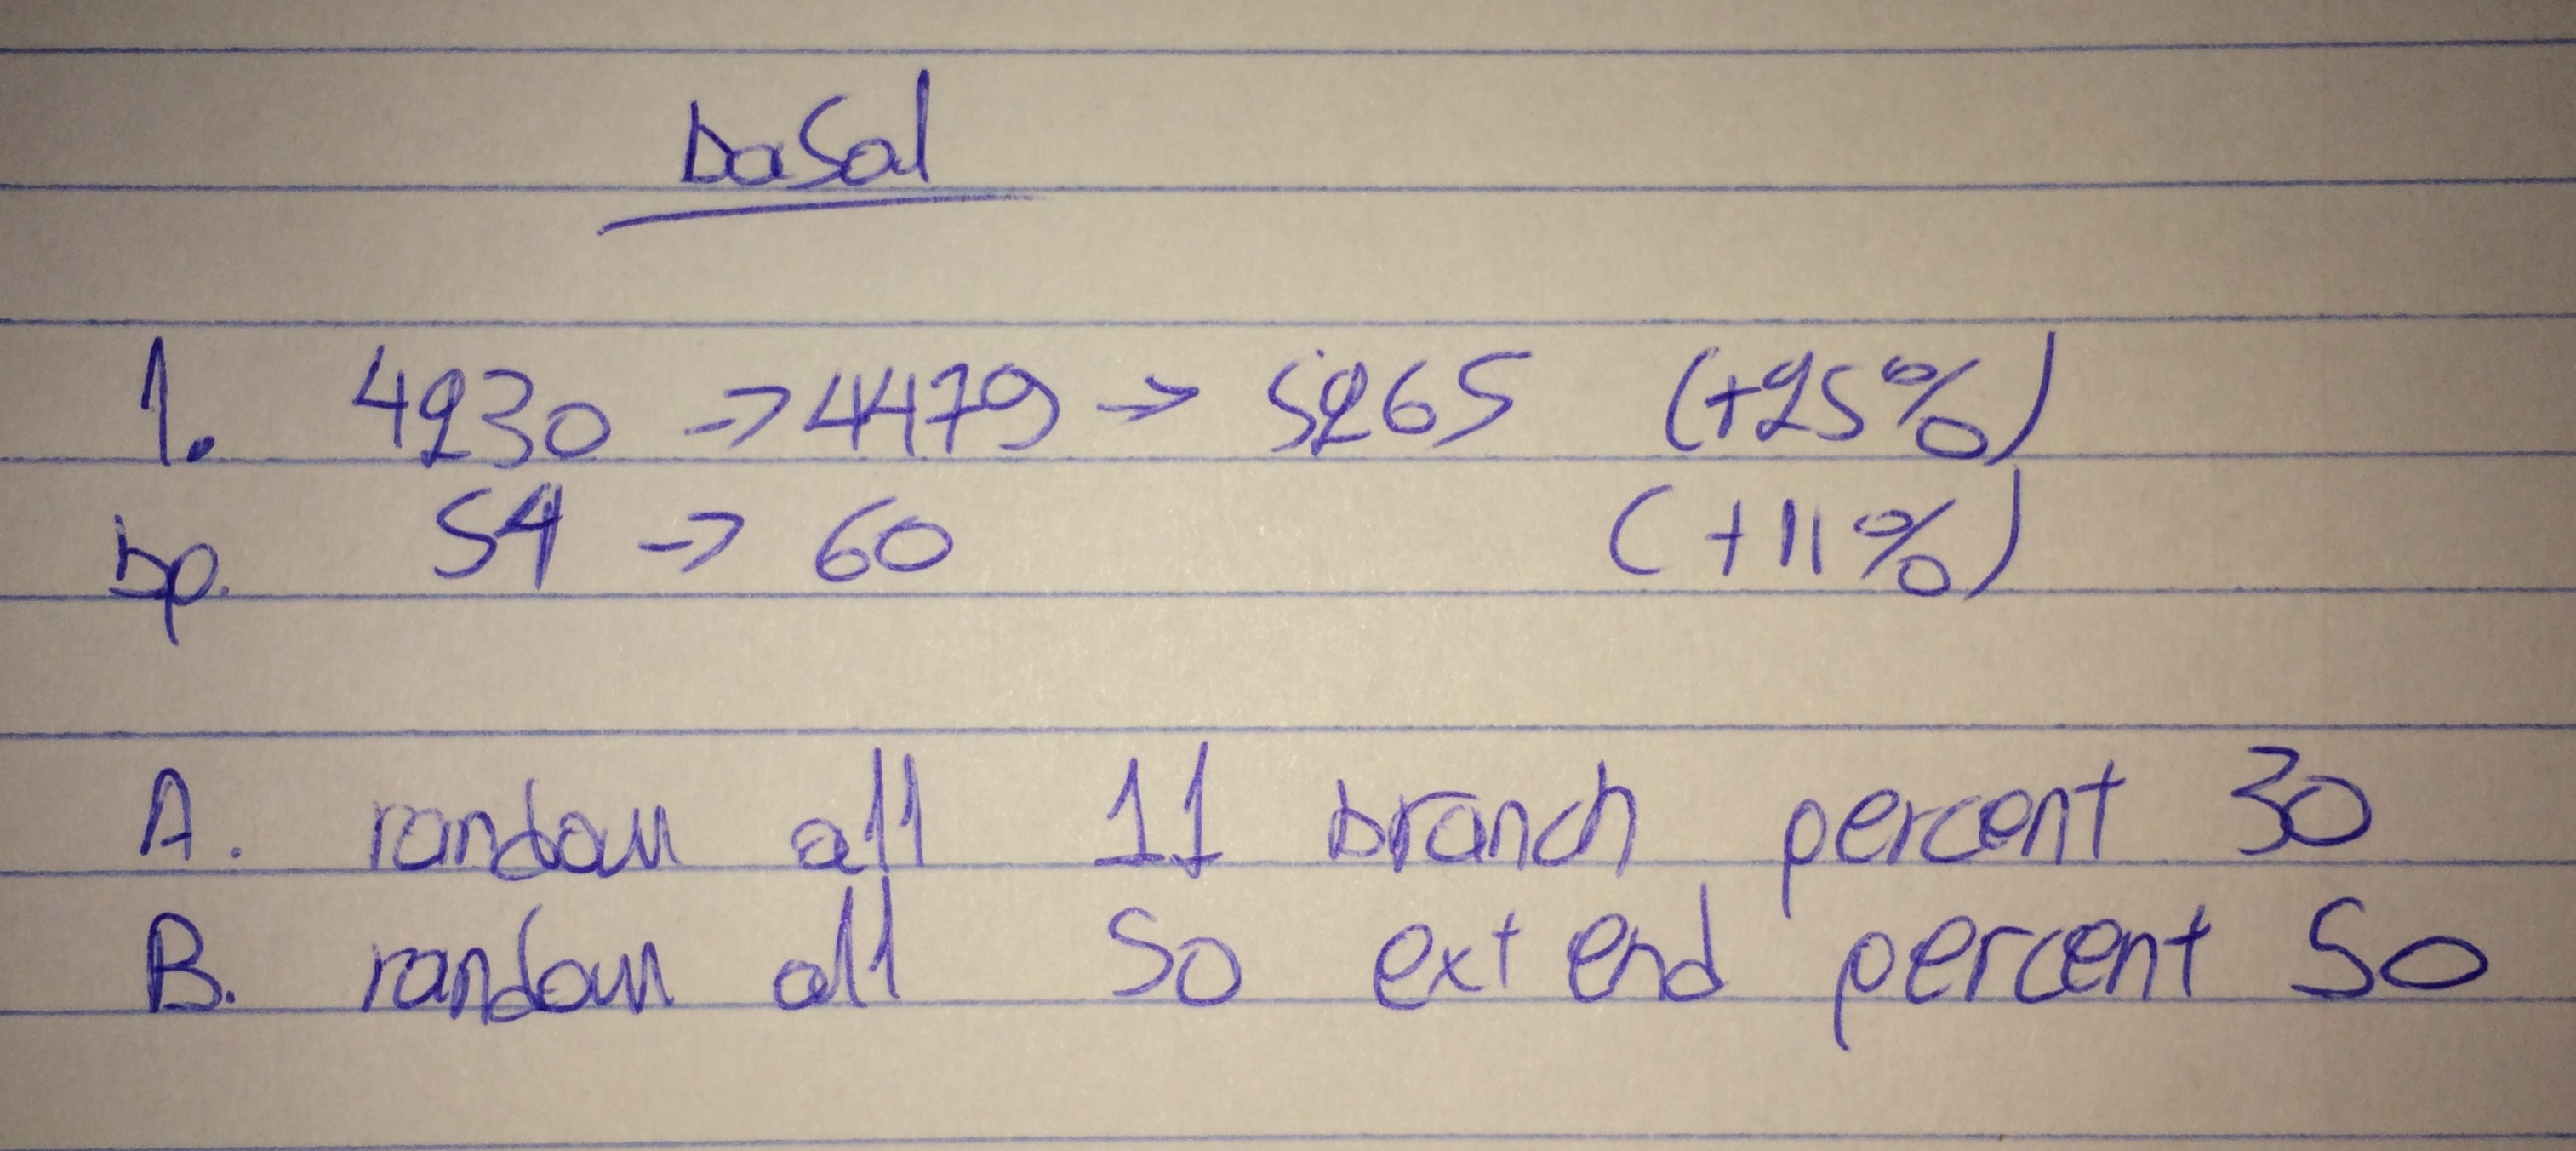 basal
1. 4230 -> 4479 -> 5265 (+25%)
bp. 54 -> 60 (+11%)
A. random all 11 branch percent 30
B. random all 50 extend percent 50